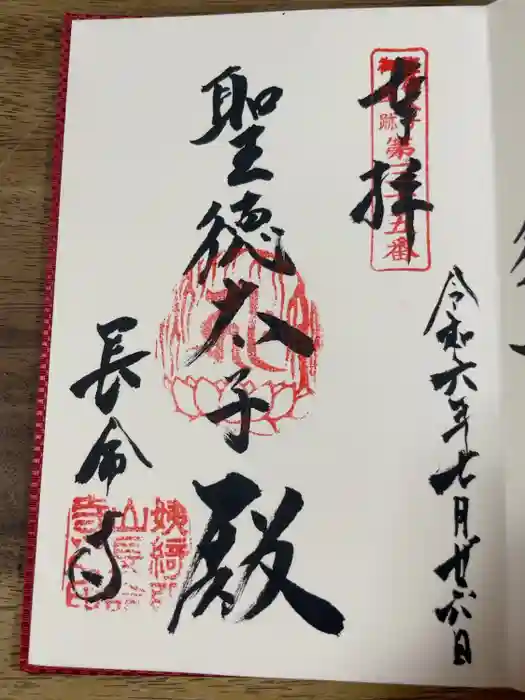 奉拝
跡 第 五番
令和六年七月廿六日
聖徳太子殿
長命寺
姨綺耶
山長命
寺之印